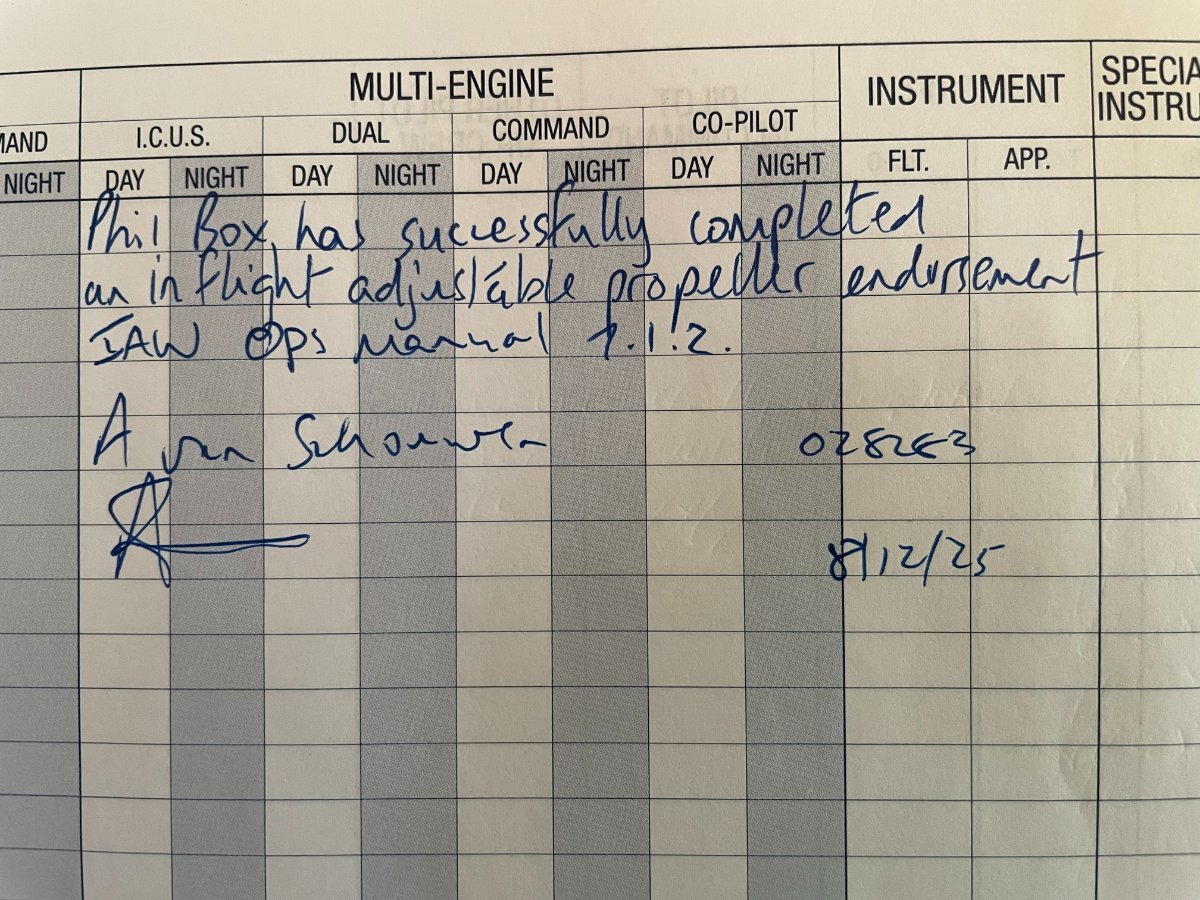 MULTI-ENGINE INSTRUMENT SPECIA
INSTRU
MAND I.C.U.S. DUAL COMMAND CO-PILOT
NIGHT DAY NIGHT DAY NIGHT DAY NIGHT DAY NIGHT FLT. APP.
Phil Box, has successfully completed
an in flight adjustable propeller endorsement
IAW Ops Manual 1.1.2.
A van Schouwen 028263
8/12/25